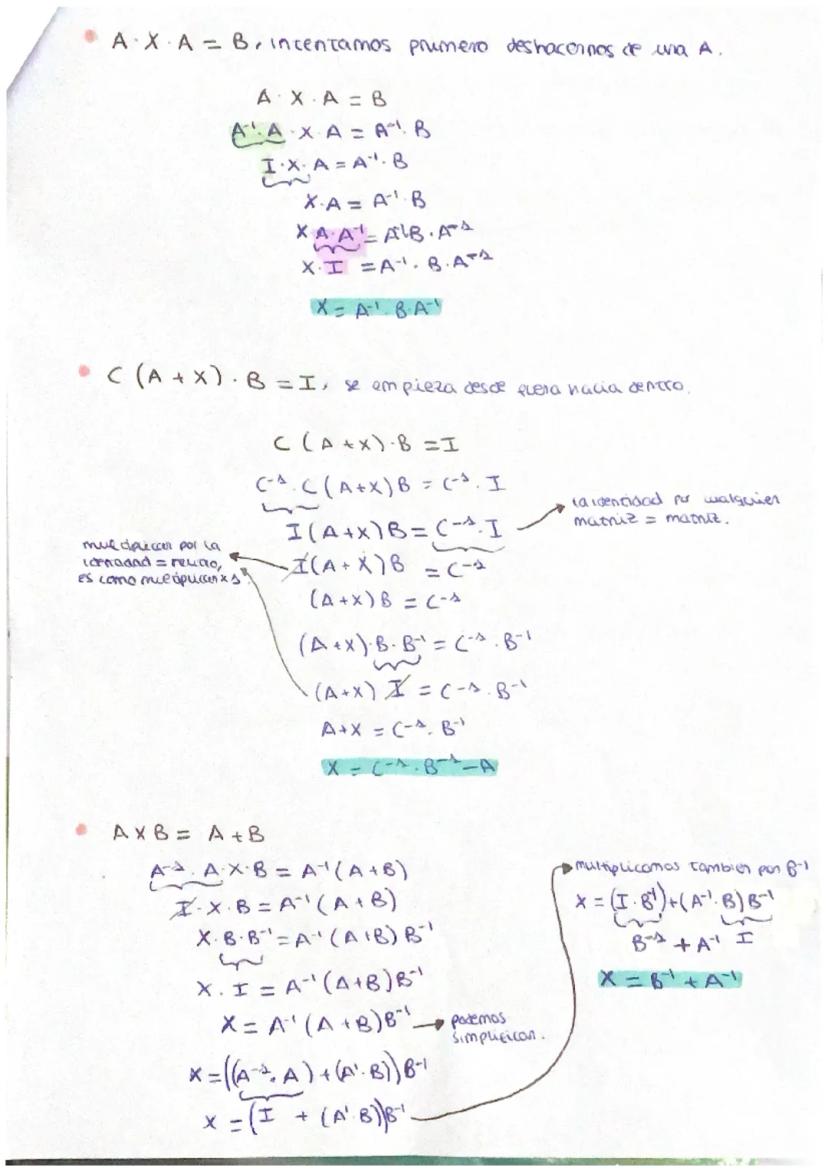 A · X · A = B, intentamos primero deshacernos de una A.
A · X · A = B
A⁻¹·A · X · A = A⁻¹· B
I·X·A = A⁻¹· B
X·A = A⁻¹ B
X A·A⁻¹ = A⁻¹B · A⁻¹
X · I = A⁻¹ · B·A⁻¹
X = A⁻¹ · B·A⁻¹
C (A + X) · B = I, se empieza desde fuera hacia dentro.
C (A + X)·B = I
C⁻¹·C (A+X) B = C⁻¹ · I
I (A+X) B = C⁻¹·I
la identidad por cualquier
matriz = matriz.
multiplicar por la
identidad = mismo,
es como multiplicar x 1
I (A + X) B = C⁻¹
(A+X) B = C⁻¹
(A+X)·B·B⁻¹ = C⁻¹ · B⁻¹
(A+X) I = C⁻¹ · B⁻¹
A+X = C⁻¹· B⁻¹
X = C⁻¹·B⁻¹ − A
A X B = A + B
A⁻¹·A·X·B = A⁻¹(A+B)
I·X·B = A⁻¹(A+B)
X·B·B⁻¹ = A⁻¹(A+B) B⁻¹
X · I = A⁻¹(A+B)B⁻¹
X = A⁻¹(A+B)B⁻¹
podemos
simplificar.
X = ((A⁻¹·A) + (A⁻¹·B)) B⁻¹
X = (I + (A⁻¹·B))B⁻¹
multiplicamos tambien por B⁻¹
X = (I·B⁻¹) + (A⁻¹·B) B⁻¹
B⁻¹ + A⁻¹ I
X = B⁻¹ + A⁻¹